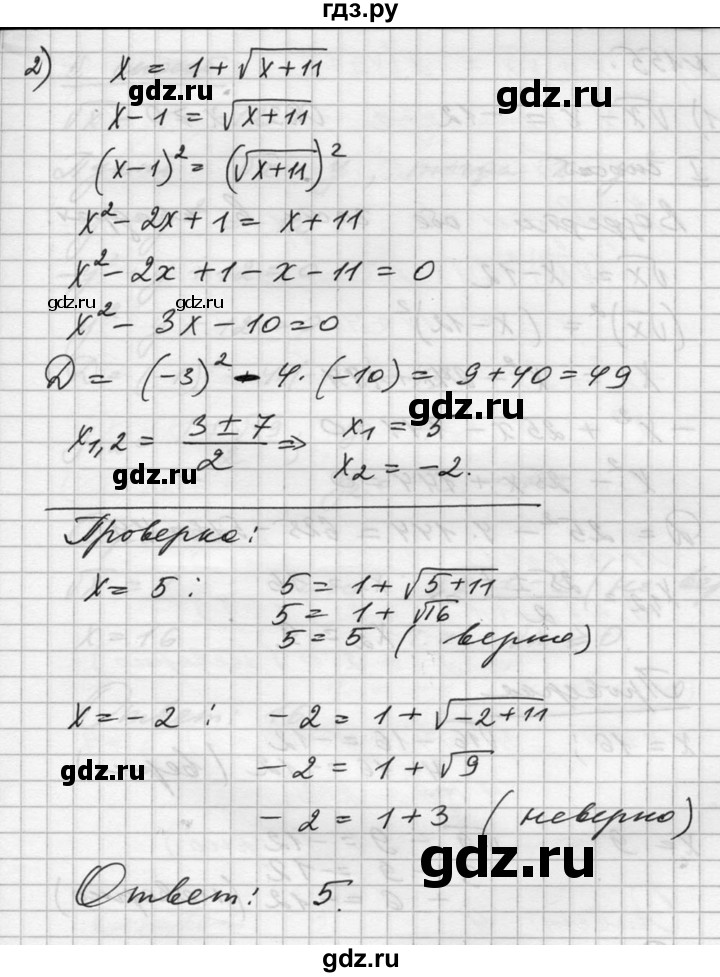 гдз.ру
2) x = 1 + √(x+11)
gdz.ru
gdz.ru
x-1 = √(x+11)
(x-1)² = (√(x+11))²
x² - 2x + 1 = x + 11
x² - 2x + 1 - x - 11 = 0
gdz.ru gdz.ru
x² - 3x - 10 = 0
D = (-3)² - 4·(-10) = 9 + 40 = 49
gdz.ru
x₁,₂ = (3 ± 7)/2 ⇒ x₁ = 5
x₂ = -2.
gdz.ru
Проверка:
x = 5 : 5 = 1 + √(5+11)
5 = 1 + √16
5 = 5 (верно)
x = -2 : -2 = 1 + √(-2+11)
gdz.ru
-2 = 1 + √9
-2 = 1 + 3 (неверно)
gdz.ru
Ответ: 5.
gdz.ru